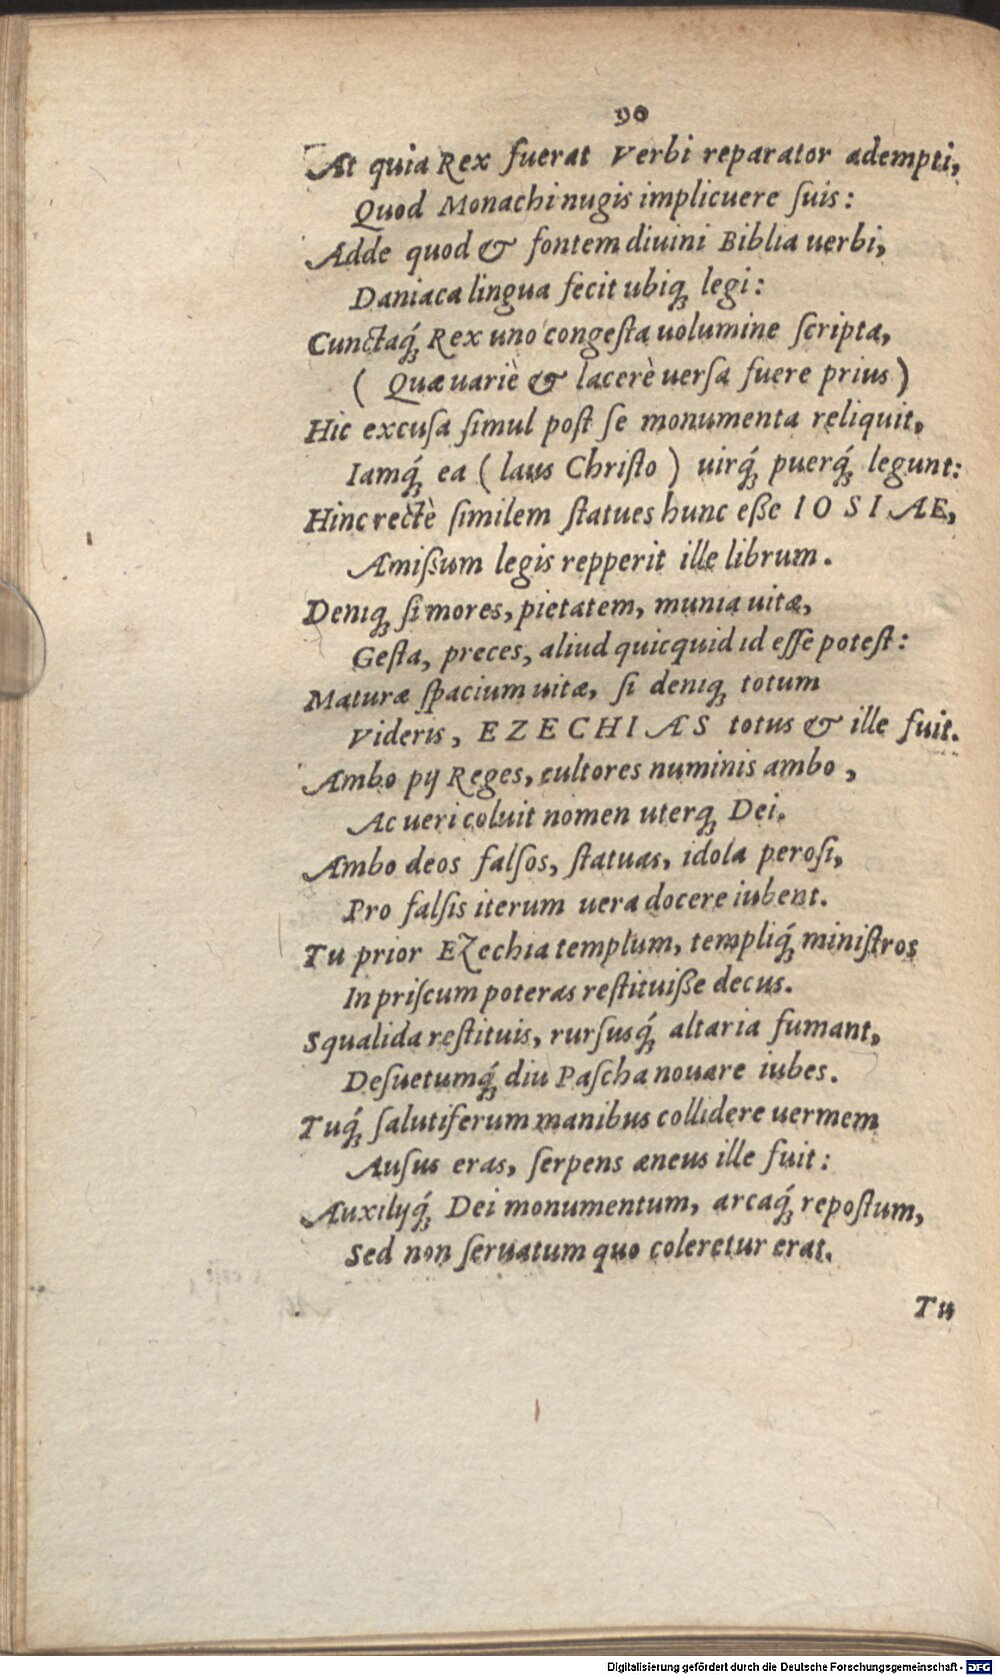 90
At quia Rex fuerat Verbi reparator adempti,
Quod Monachi nugis implicuere ſuis:
Adde quod & fontem diuini Biblia uerbi,
Daniaca lingua fecit ubiqꝫ legi:
Cunctaq́ꝫ Rex uno congeſta uolumine ſcripta,
( Quæ uariè & lacerè uerſa fuere prius )
Hic excuſa ſimul poſt ſe monumenta reliquit,
Iamq́ꝫ ea ( laus Chriſto ) uirq́ꝫ puerq́ꝫ legunt:
Hinc rectè ſimilem ſtatues hunc eßе IOSIAE,
Amißum legis repperit ille librum.
Deniqꝫ ſi mores, pietatem, munia uitæ,
Geſta, preces, aliud quicquid id eſſe poteſt:
Maturæ ſpacium uitæ, ſi deniqꝫ totum
Videris, EZECHIAS totus & ille fuit.
Ambo pij Reges, cultores numinis ambo,
Ac ueri coluit nomen uterqꝫ Dei.
Ambo deos falſos, ſtatuas, idola peroſi,
Pro falſis iterum uera docere iubent.
Tu prior Ezechia templum, templiq́ꝫ miniſtros
In priſcum poteras reſtituiße decus.
Squalida reſtituis, rurſusq́ꝫ altaria fumant,
Deſuetumq́ꝫ diu Paſcha nouare iubes.
Tuq́ꝫ ſalutiferum manibus collidere uermem
Auſus eras, ſerpens æneus ille fuit:
Auxilijq́ꝫ Dei monumentum, arcaq́ꝫ repoſtum,
Sed non ſeruatum quo coleretur erat.
Tu
Digitalisierung gefördert durch die Deutsche Forschungsgemeinschaft - DFG